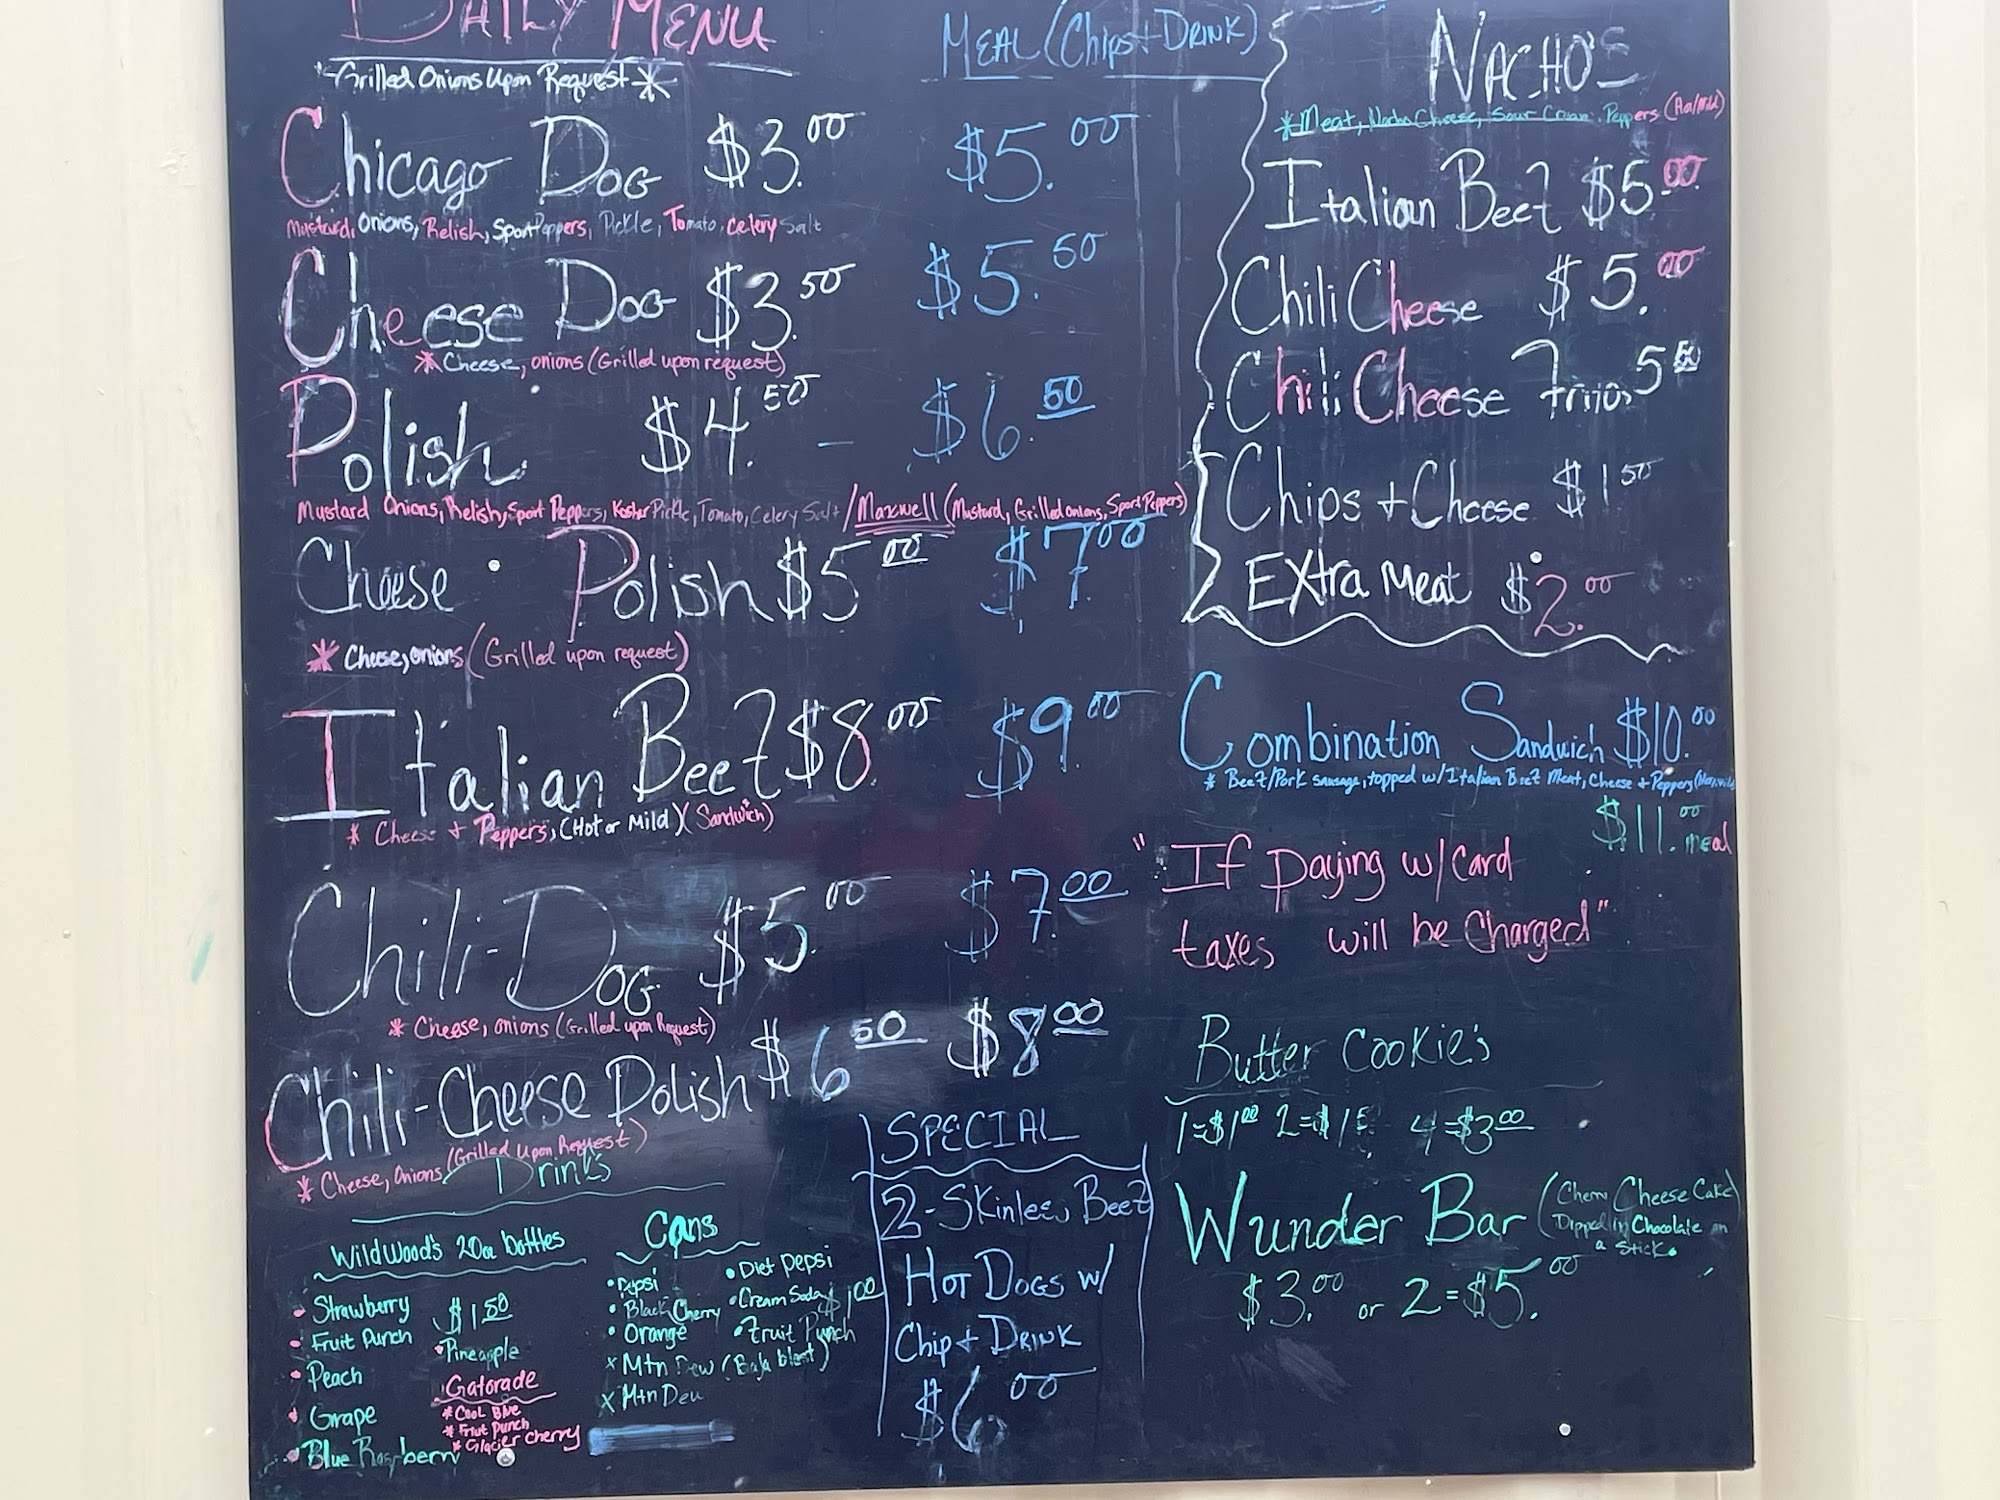 DAILY MENU
*Grilled Onions Upon Request*
MEAL (Chips + DRINK)
Chicago DOG $3.00 $5.00
Mustard, Onions, Relish, Sport Peppers, Pickle, Tomato, Celery Salt
Cheese DOG $3.50 $5.50
* Cheese, onions (Grilled upon request)
Polish $4.50 - $6.50
Mustard Onions, Relish, Sport Peppers, Kosher Pickle, Tomato, Celery Salt / Maxwell (Mustard, Grilled onions, Sport Peppers)
Cheese Polish $5.00 $7.00
* Cheese, onions (Grilled upon request)
Italian Beef $8.00 $9.00
* Cheese + Peppers, (Hot or Mild) (Sandwich)
Chili-DOG $5.00 $7.00
* Cheese, onions (Grilled upon Request)
Chili-Cheese Polish $6.50 $8.00
* Cheese, Onions (Grilled Upon Request)
Drinks
Wildwood's 20oz bottles
Strawberry $1.50
Fruit Punch
Pineapple
Peach
Grape
Blue Raspberry
Gatorade
* Cool Blue
* Friut Punch
* Glacier Cherry
Cans
• Pepsi • Diet Pepsi
• Black Cherry • Cream Soda $1.00
• Orange • Fruit Punch
x Mtn Dew (Baja blast)
x Mtn Dew
SPECIAL
2- Beef
HOT DOGS w/
Chip + DRINK
$6.00
NACHO'S
* Meat, Nacho Cheese, Sour Cream, Peppers (Hot/Mild)
Italian Beef $5.00
Chili Cheese $5.00
Chili Cheese Fritos 5.50
Chips + Cheese $1.50
EXtra Meat $2.00
Combination Sandwich $10.00
* Beef/Pork sausage, topped w/Italian Beef Meat, Cheese + Peppers
$11.00 meal
"If paying w/card
taxes will be Charged"
Butter Cookie's
1=$1.00 4=$3.00
Wunder Bar (Cherry Cheese Cake
Dipped in Chocolate on
a Stick.
$3.00 or 2=$5.00